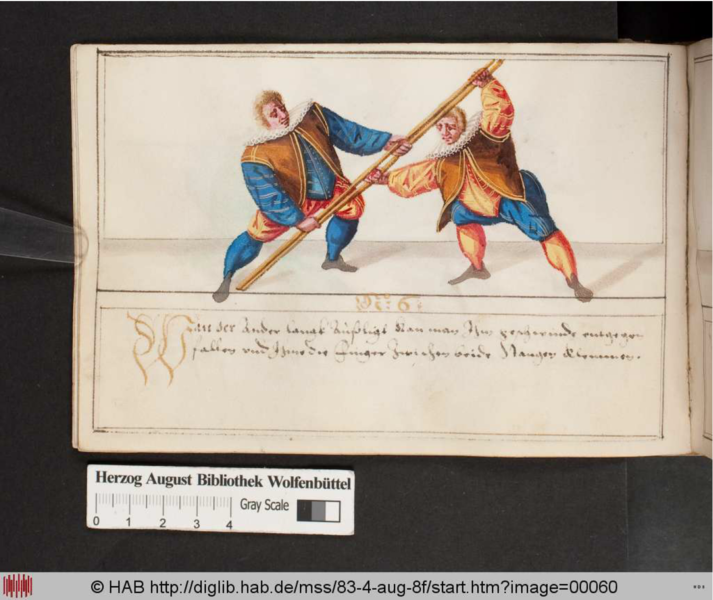 N: 6:
Wan der Ander langk Außligt kan man Ihm geschwinde entgegen
fallen vnd Ihme die Finger Zwischen beide Stangen klemmen.
Herzog August Bibliothek Wolfenbüttel
Gray Scale
0 1 2 3 4
© HAB http://diglib.hab.de/mss/83-4-aug-8f/start.htm?image=00060